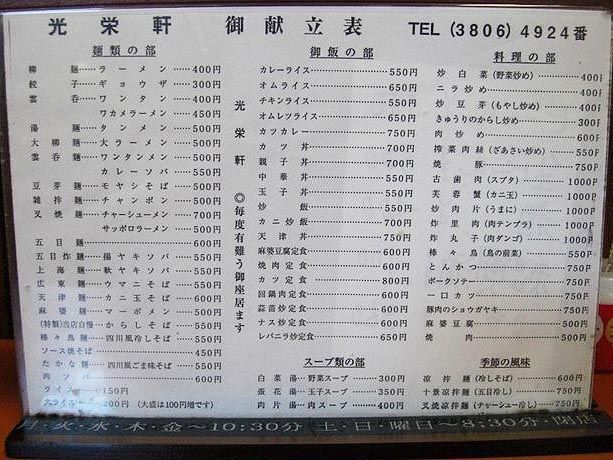 光栄軒 御献立表 TEL (3806) 4924番
麺類の部
柳麺……ラーメン……400円
餃子……ギョウザ……300円
雲呑……ワンタン……400円
ワカメラーメン……450円
湯麺……タンメン……500円
大柳麺……大ラーメン……500円
雲呑麺……ワンタンメン……500円
カレーソバ……550円
豆芽麺……モヤシそば……500円
雑拌麺……チャンポン……500円
叉焼麺……チャーシューメン……700円
サッポロラーメン……500円
五目麺……600円
五目炸麺……揚ヤキソバ……550円
上海麺……軟ヤキソバ……550円
広東麺……ウマニそば……550円
天津麺……カニ玉そば……600円
麻婆麺……マーボメン……500円
(特製)当店自慢……からしそば……550円
棒々鳥麺……四川風冷しそば……550円
ソース焼そば……450円
たかな麺……四川風ごま味そば……550円
肉ソバ……600円
ライス……150円
大ライス……200円 (大盛は100円増です)
光栄軒 ◎毎度有難う御座居ます
御飯の部
カレーライス……550円
オムライス……650円
チキンライス……550円
オムレツライス……650円
カツカレー……750円
カツ丼……700円
親子丼……700円
中華丼……550円
玉子丼……550円
炒飯……550円
カニ炒飯……700円
天津丼……750円
麻婆豆腐定食……600円
焼肉定食……600円
カツ定食……800円
回鍋肉定食……600円
蒜苗炒定食……600円
ナス炒定食……600円
レバニラ炒定食……650円
スープ類の部
白菜湯……野菜スープ……300円
蛋花湯……玉子スープ……350円
肉片湯……肉スープ……400円
料理の部
炒白菜(野菜炒め)……400円
ニラ炒め……400円
炒豆芽(もやし炒め)……400円
きゅうりのからし炒め……300円
肉炒め……600円
搾菜肉絲(ざあさい炒め)……550円
焼豚……750円
古歯肉(スブタ)……1000円
芙蓉蟹(カニ玉)……1000円
炒肉片(うまに)……1000円
炸里肉(肉テンプラ)……1000円
炸丸子(肉ダンゴ)……1000円
棒々鳥(鳥の前菜)……550円
とんかつ……750円
ポークソテー……750円
一口カツ……750円
豚肉のショウガヤキ……750円
麻婆豆腐……500円
焼肉……500円
季節の風味
涼拌麺(冷しそば)……600円
十景涼拌麺(五目冷し)……750円
叉焼涼拌麺(チャーシュー冷し)……750円
月・火・水・木・金〜10:30分 土・日・曜日〜8:30分・閉店